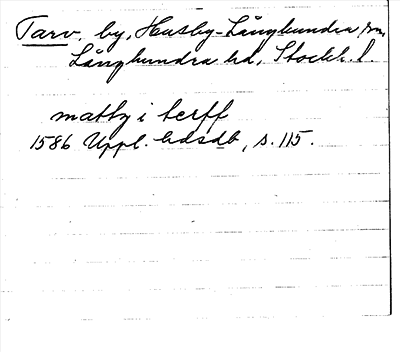 Tarv, by, Husby-Långhundra sn,
Långhundra hd, Stockh. l.
matty i terff
1586 Uppl. hdsdb, s. 115.